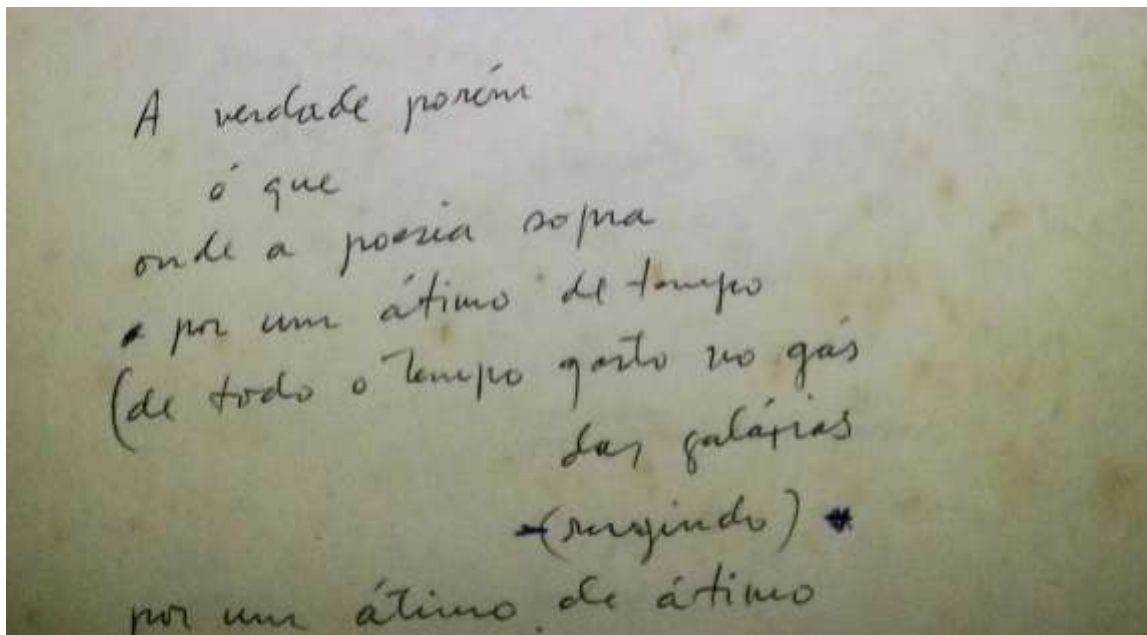 A verdade porém
é que
onde a poesia sopra
por um átimo de tempo
(de todo o tempo gasto no gás
das galáxias
(rugindo) *
por um átimo de átimo